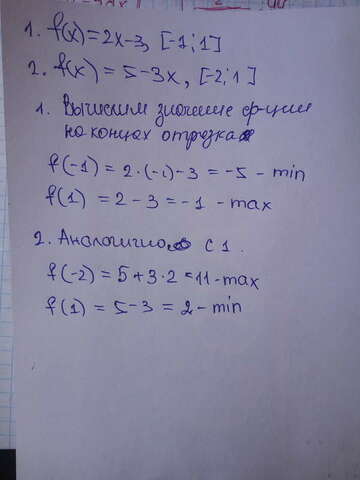 1. f(x)=2x-3, [-1;1]
2. f(x)=5-3x, [-2;1]
1. Вычислим значение ф-ции
на концах отрезка
f(-1) = 2·(-1)-3 = -5 - min
f(1) = 2-3 = -1 - max
2. Аналогично с 1.
f(-2) = 5+3·2 = 11 - max
f(1) = 5-3 = 2 - min